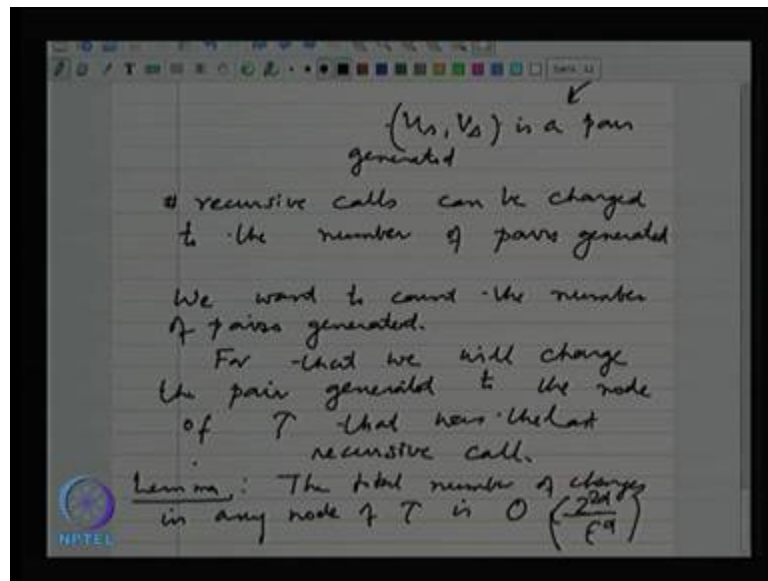 (u_s, v_s) is a pair
generated
# recursive calls can be charged
to the number of pairs generated
We want to count the number
of pairs generated.
For that we will charge
the pair generated to the node
of T that was the last
recursive call.
Lemma: The total number of charges
in any node of T is O(2^{2d}/ε^d)
NPTEL